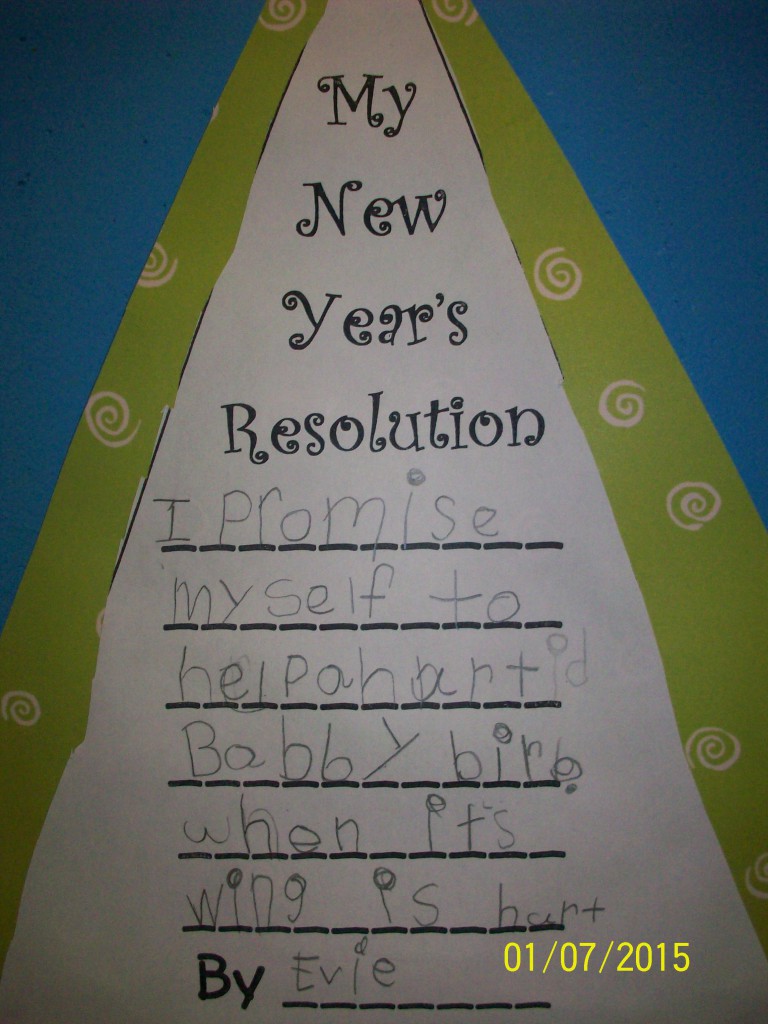 My
New
Year's
Resolution
I promise
myself to
help a hart id
Babby birb
when it's
wing is hart
By Evie
01/07/2015